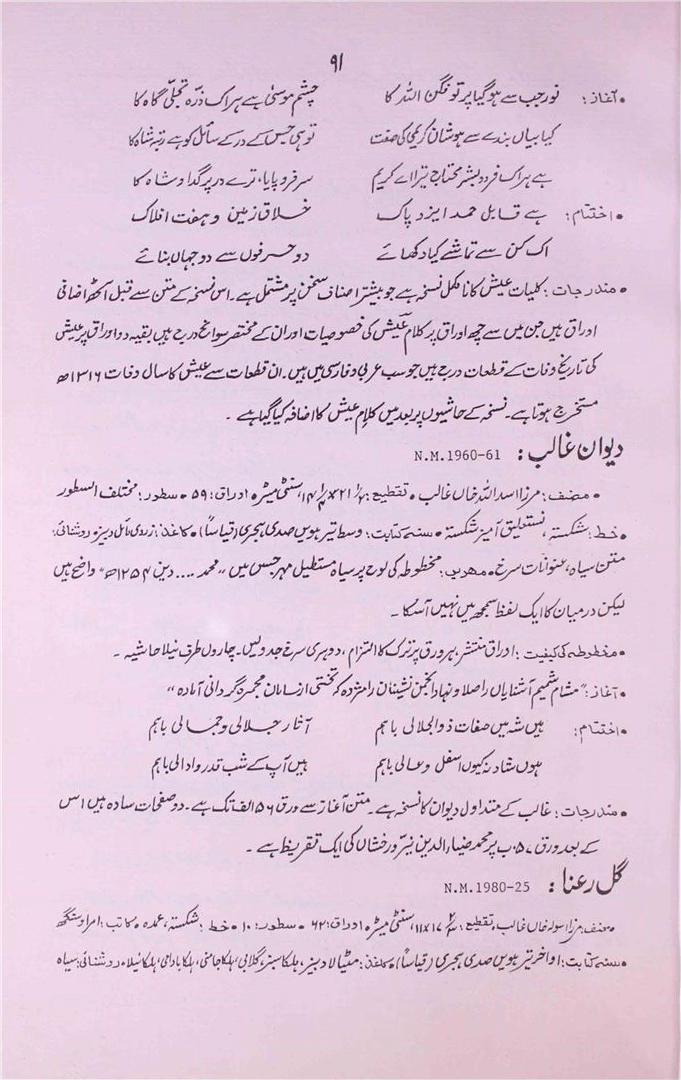 ۹۱
• آغاز: نور جب سے ہو گیا پر تو فگن اللہ کا چشمِ موسیٰ ہے ہر اک ذرّہ تجلّی گاہ کا
کیا بیاں بندے سے ہو شان کریمی کی صفت تو ہی جس کے در کے سائل کو ہے رتبہ شاہ کا
ہے ہر اک فرد و بشر محتاج تیرا اے کریم سر فرو پایا، ترے در پر گدا و شاہ کا
• اختتام: ہے قابل حمد ایزد پاک خلاق زمین و ہفت افلاک
اک کن سے تماشے کیا دکھائے دو حرفوں سے دو جہاں بنائے
• مندرجات: کلیات عیش کا نامکمل نسخہ ہے جو بیشتر اصناف سخن پر مشتمل ہے۔ اس نسخہ کے متن سے قبل آٹھ اضافی
اوراق ہیں جن میں سے چھ اوراق پر کلام عیش کی خصوصیات اور ان کے مختصر سوانح درج ہیں بقیہ دو اوراق پر عیش
کی تاریخ وفات کے قطعات درج ہیں جو سب عربی و فارسی میں ہیں۔ ان قطعات سے عیش کا سال وفات ۱۳۱۶ھ
مستخرج ہوتا ہے۔ نسخہ کے حاشیوں پر بعد میں کلام عیش کا اضافہ کیا گیا ہے۔
دیوان غالب: N.M.1960-61
• مصنف: مرزا اسد اللہ خاں غالب • تقطیع: سنٹی میٹر • اوراق: ۵۹ • سطور: مختلف السطور
• خط: شکستہ، نستعلیق آمیز شکستہ • سنہ کتابت: وسط تیرہویں صدی ہجری (قیاساً) • کاغذ: زردی مائل دبیز • روشنائی:
متن سیاہ، عنوانات سرخ • مہریں: مخطوطہ کی لوح پر سیاہ مستطیل مہر جس میں "محمد .... دین ۱۲۵۴ھ" واضح ہیں
لیکن درمیان کا ایک لفظ سمجھ میں نہیں آسکا۔
• مخطوطہ کی کیفیت: اوراق منتشر، ہر ورق پر ترک کا التزام، دوہری سرخ جدولیں۔ چاروں طرف نیلا حاشیہ۔
• آغاز: "مشام شمیم آشنایاں را صلا و نہاد انجمن نشینان را مژدہ کہ لختی از سامان مجمرہ گردانی آمادہ"
• اختتام: ہیں شہ میں صفات ذوالجلالی باہم آثار جلالی و جمالی باہم
ہوں شاد نہ کیوں اسفل و عالی باہم ہیں آپ کے شب قدر و دوالی باہم
• مندرجات: غالب کے متداول دیوان کا نسخہ ہے۔ متن آغاز سے ورق ۵۶ الف تک ہے۔ دو صفحات سادہ ہیں اس
کے بعد ورق ۵۷ ب پر محمد ضیاء الدین نیّر و رخشاں کی ایک تقریظ ہے۔
گل رعنا: N.M.1980-25
مصنف: مرزا خاں غالب، تقطیع: سنٹی میٹر • اوراق: ۶۲ • سطور: ۱۰ • خط: شکستہ، عمدہ • کاتب: امراؤ سنگھ
• سنہ کتابت: اواخر تیرہویں صدی ہجری (قیاساً) • کاغذ: مٹیالا دبیز، ہلکا سبز، گلابی، ہلکا جامنی، ہلکا بادامی، ہلکا نیلا • روشنائی: سیاہ